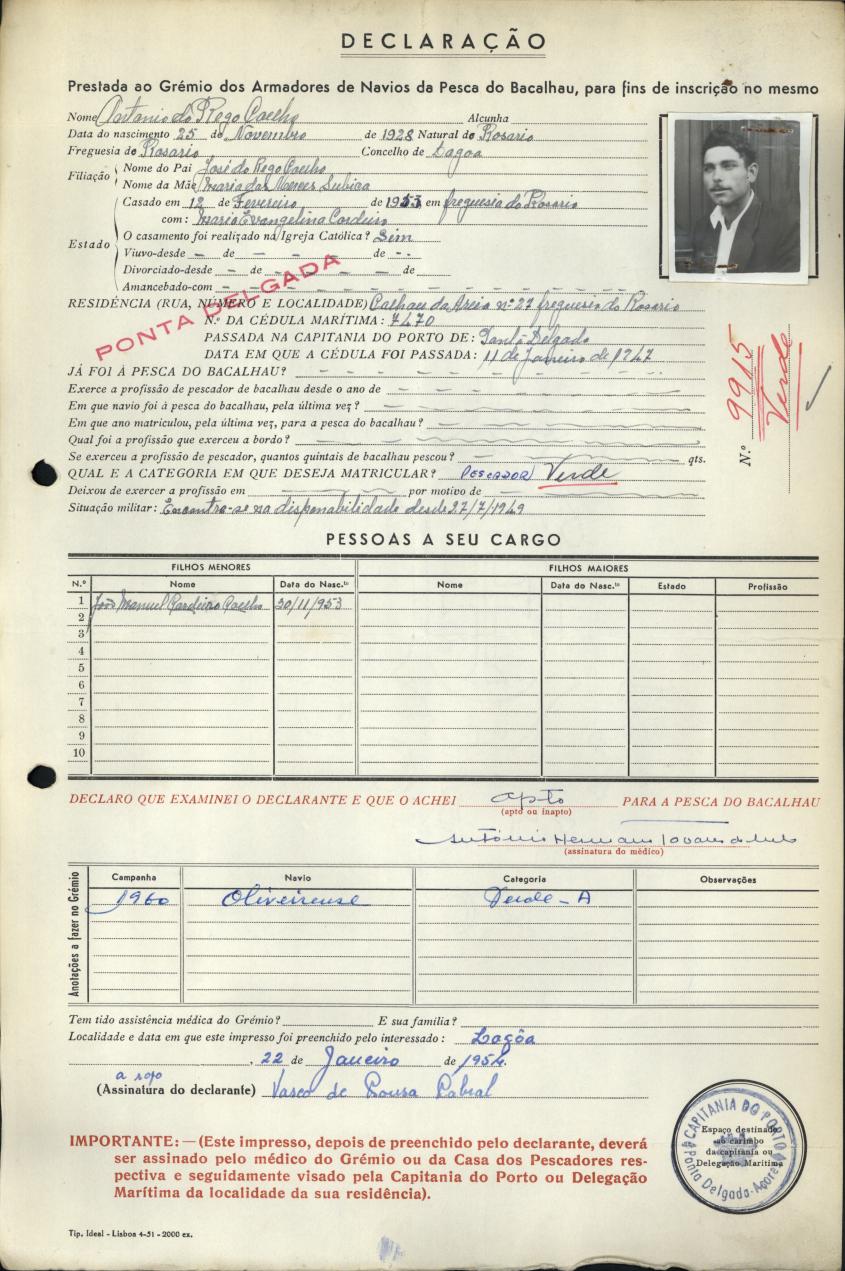 DECLARAÇÃO
Prestada ao Grémio dos Armadores de Navios da Pesca do Bacalhau, para fins de inscrição no mesmo
Nome Antonio do Rego Coelho Alcunha
Data do nascimento 25 de Novembro de 1928 Natural de Rosario
Freguesia de Rosario Concelho de Lagoa
Filiação Nome do Pai José do Rego Coelho
Nome da Mãe Maria das Merces
Estado Casado em 12 de Fevereiro de 1953 em freguesia do Rosario
com: Maria Evangelina Cordeiro
O casamento foi realizado na Igreja Católica? Sim
Viuvo-desde - de - - de - -
Divorciado-desde - de - - - de
Amancebado-com - - - - - -
PONTA DELGADA
RESIDÊNCIA (RUA, NÚMERO E LOCALIDADE) Calhau da Areia nº 27 freguesia do Rosario
N.º DA CÉDULA MARÍTIMA: 7470
PASSADA NA CAPITANIA DO PORTO DE: Ponta Delgada
DATA EM QUE A CÉDULA FOI PASSADA: 11 de Janeiro de 1947
JÁ FOI À PESCA DO BACALHAU?
Exerce a profissão de pescador de bacalhau desde o ano de
Em que navio foi à pesca do bacalhau, pela última vez?
Em que ano matriculou, pela última vez, para a pesca do bacalhau?
Qual foi a profissão que exerceu a bordo?
Se exerceu a profissão de pescador, quantos quintais de bacalhau pescou? qts.
QUAL E A CATEGORIA EM QUE DESEJA MATRICULAR? PESCADOR Verde
Deixou de exercer a profissão em por motivo de
Situação militar: Encontra-se na disponabilidade desde 27/7/1949
N.º 9915
Verde
PESSOAS A SEU CARGO
FILHOS MENORES FILHOS MAIORES
N.º Nome Data do Nasc.to Nome Data do Nasc.to Estado Profissão
1 João Manuel Cordeiro Coelho 30/11/953
2
3
4
5
6
7
8
9
10
DECLARO QUE EXAMINEI O DECLARANTE E QUE O ACHEI apto PARA A PESCA DO BACALHAU
(apto ou inapto)
António Hermano
(assinatura do médico)
Anotações a fazer no Grémio
Campanha Navio Categoria Observações
1960 Oliveirense Verde - A
Tem tido assistência médica do Grémio? E sua família?
Localidade e data em que este impresso foi preenchido pelo interessado: Lagôa
, 22 de Janeiro de 1954.
a rogo
(Assinatura do declarante) Vasco de Sousa Cabral
IMPORTANTE: — (Este impresso, depois de preenchido pelo declarante, deverá
ser assinado pelo médico do Grémio ou da Casa dos Pescadores res-
pectiva e seguidamente visado pela Capitania do Porto ou Delegação
Marítima da localidade da sua residência).
CAPITANIA DO PORTO
Ponta Delgada-Açores
Espaço destinado
ao carimbo
da capitania ou
Delegação Marítima
Tip. Ideal - Lisboa 4-51 - 2000 ex.